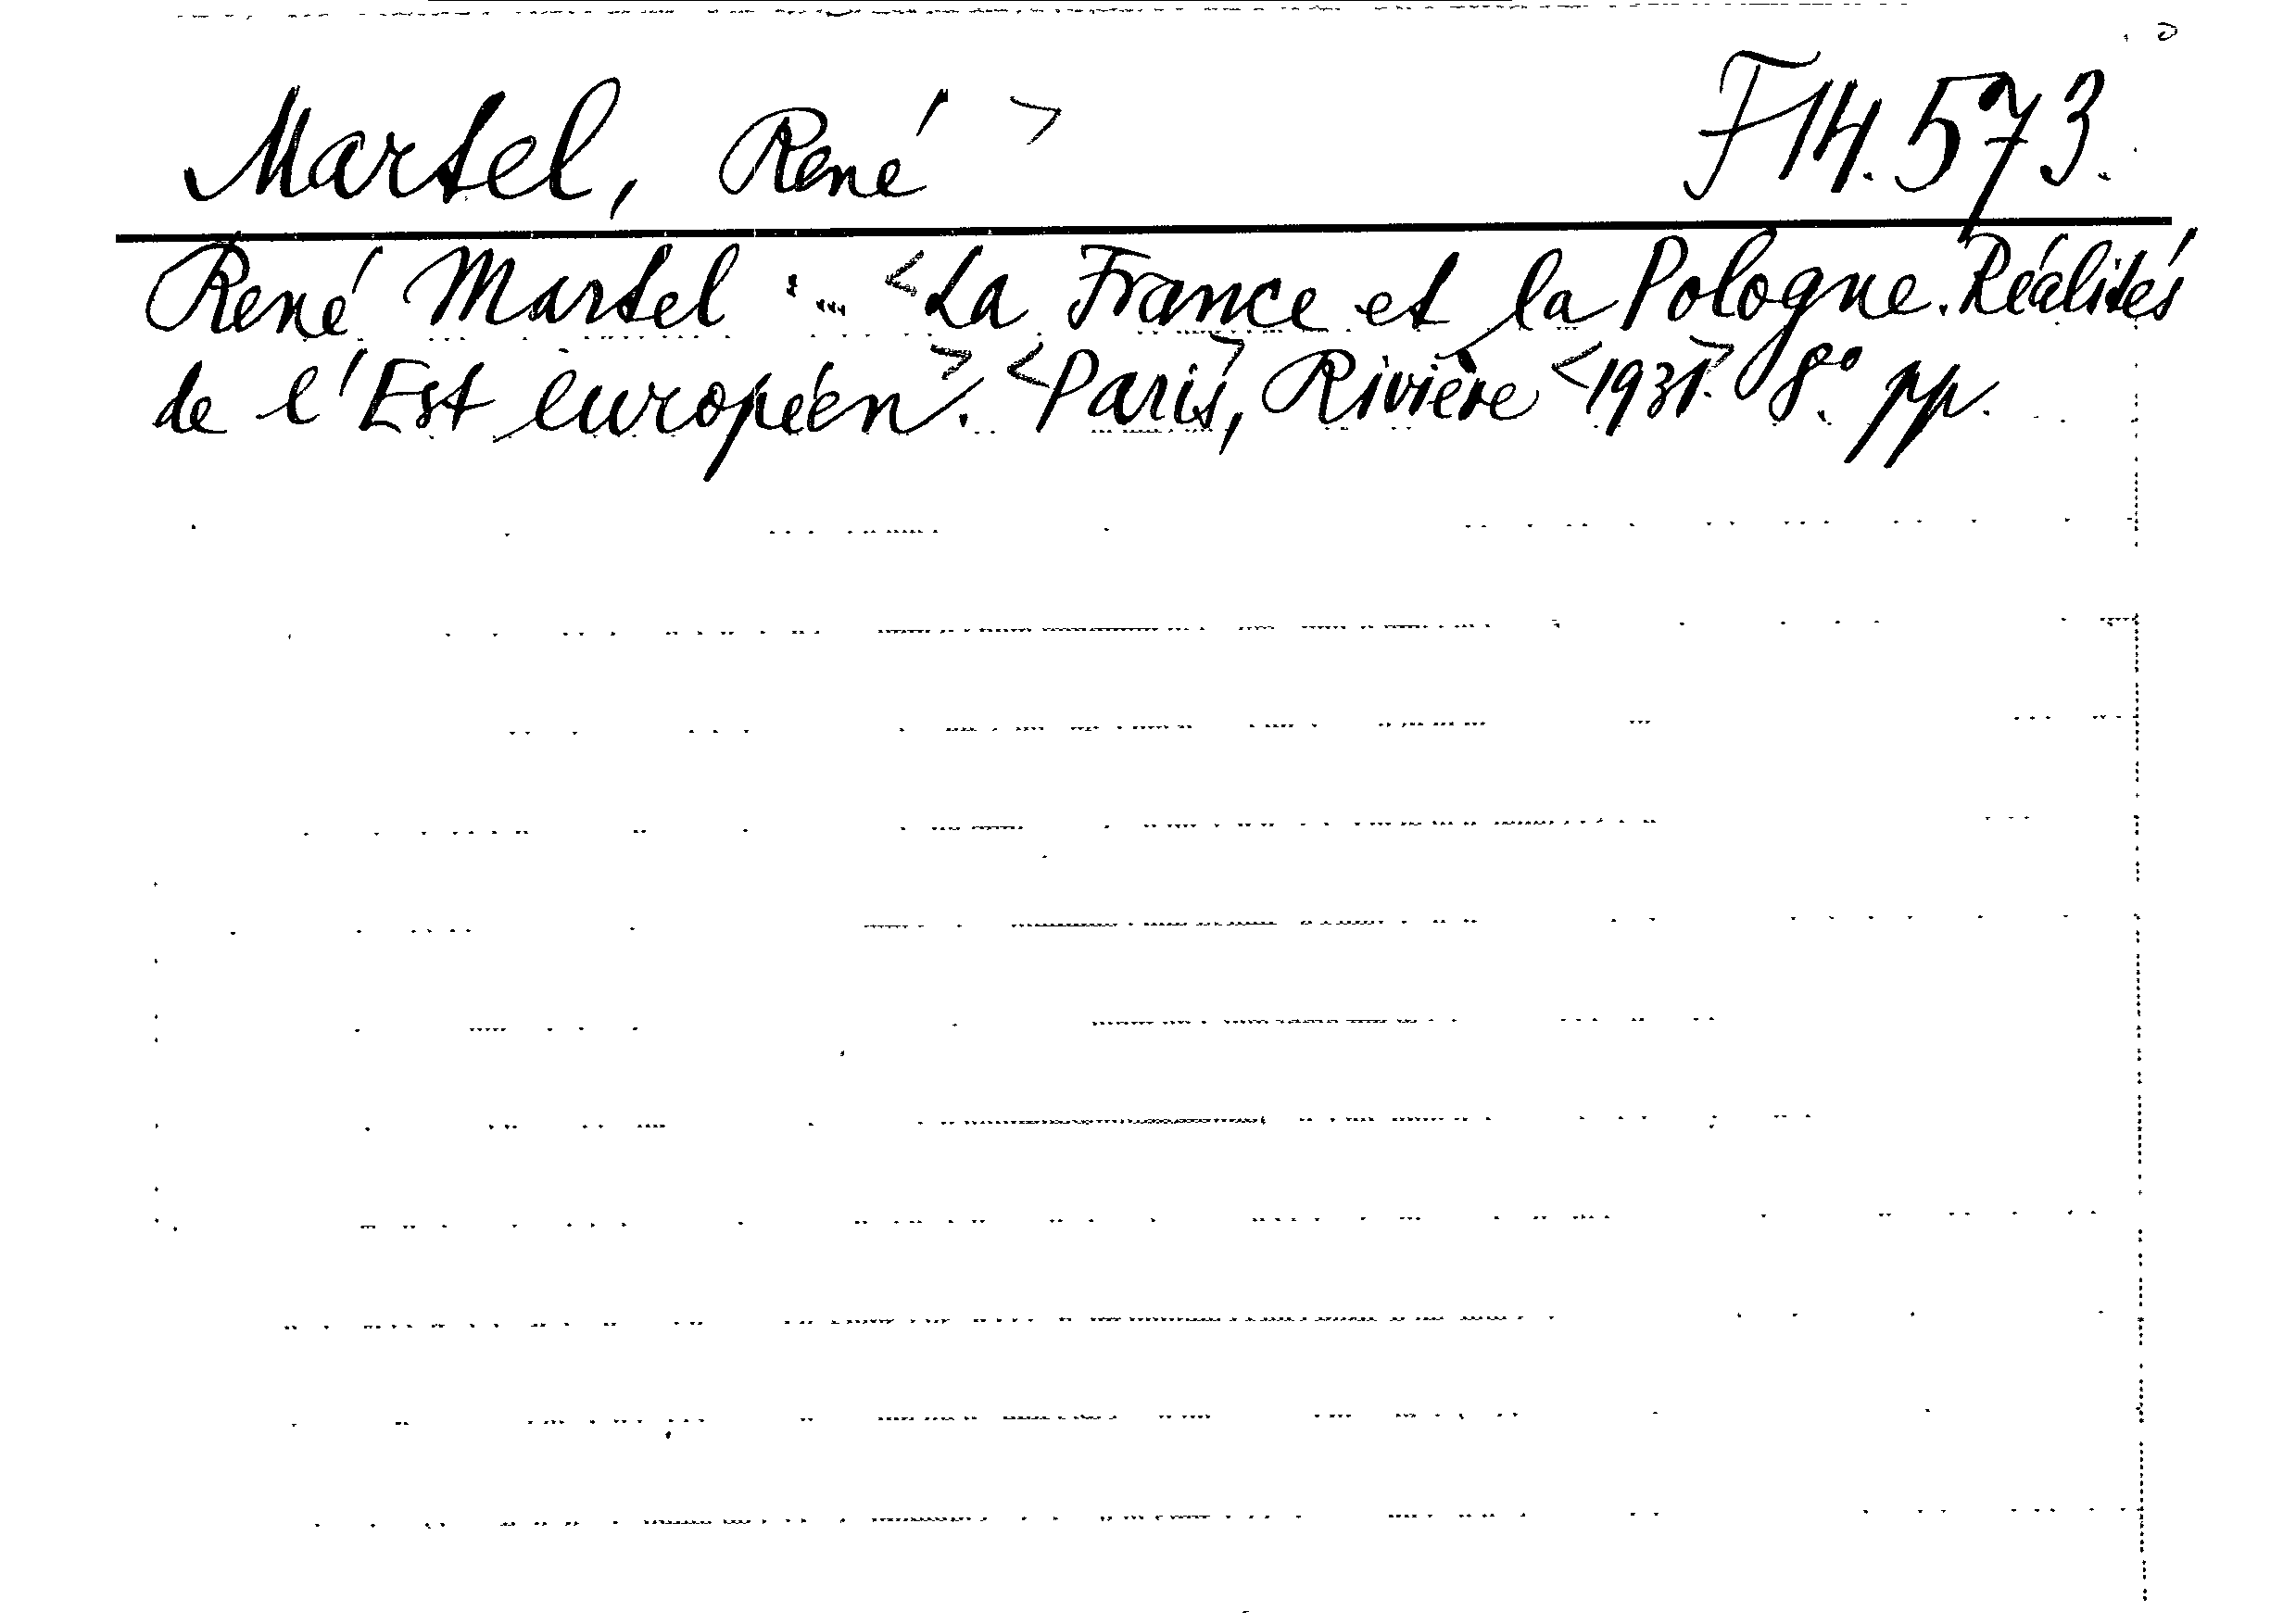 Martel, René > F 14.573.
René Martel : ... <La France et la Pologne. Réalités
de l'Est européen>. <Paris>, Rivière <1931>. 8° pp.